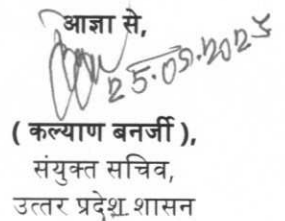 आज्ञा से,
25.09.2025
( कल्याण बनर्जी ),
संयुक्त सचिव,
उत्तर प्रदेश शासन